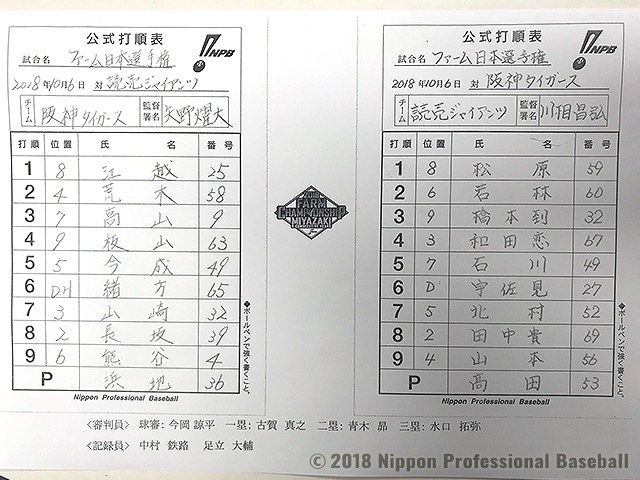 公式打順表
NPB
試合名 ファーム日本選手権
2018年10月6日 対 読売ジャイアンツ
チーム 阪神タイガース 監督署名 矢野燿大
打順 位置 氏 名 番号
1 8 江越 25
2 4 荒木 58
3 7 高山 9
4 9 板山 63
5 5 今成 49
6 DH 緒方 65
7 3 山崎 32
8 2 長坂 39
9 6 熊谷 4
P 浜地 36
◆ボールペンで強く書くこと。
Nippon Professional Baseball
2018
FARM
CHAMPIONSHIP
MIYAZAKI
公式打順表
NPB
試合名 ファーム日本選手権
2018年10月6日 対 阪神タイガース
チーム 読売ジャイアンツ 監督署名 川相昌弘
打順 位置 氏 名 番号
1 8 松原 59
2 6 若林 60
3 9 橋本到 32
4 3 和田恋 67
5 7 石川 49
6 D 宇佐見 27
7 5 北村 52
8 2 田中貴 69
9 4 山本 56
P 高田 53
◆ボールペンで強く書くこと。
Nippon Professional Baseball
〈審判員〉 球審: 今岡 諒平 一塁: 古賀 真之 二塁: 青木 昴 三塁: 水口 拓弥
〈記録員〉 中村 鉄路 足立 大輔
© 2018 Nippon Professional Baseball